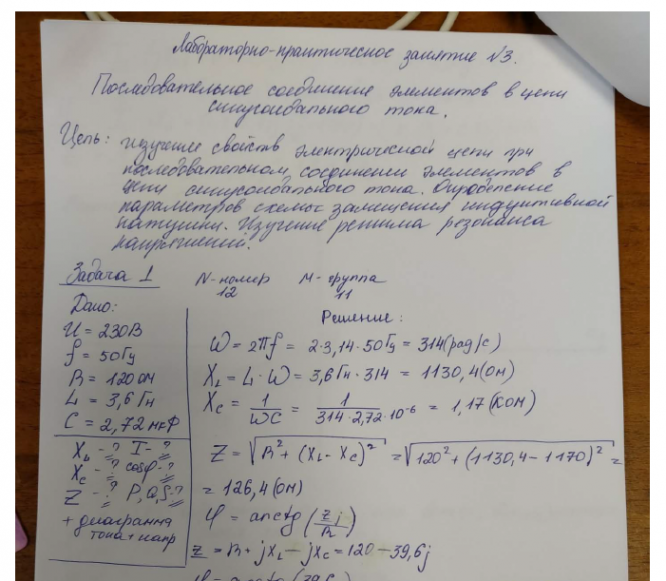 Лабораторно-практическое занятие №3.
Последовательное соединение элементов в цепи
синусоидального тока.
Цель: изучение свойств электрической цепи при
последовательном соединении элементов в
цепи синусоидального тока. Определение
параметров схемы замещения индуктивной
катушки. Изучение режима резонанса
напряжений.
Задача 1 N-номер M-группа
12 11
Дано:
U = 230В
f = 50Гц
R = 120 Ом
L = 3,6 Гн
C = 2,72 мкФ
XL - ? I - ?
XC - ? cosφ - ?
Z - ? P, Q, S - ?
+ диаграмма
тока + напр
Решение:
W = 2πf = 2·3,14·50Гц = 314(рад/с)
XL = L·W = 3,6Гн·314 = 1130,4(Ом)
XC = 1/WC = 1/314·2,72·10⁻⁶ = 1,17(кОм)
Z = √R² + (XL - XC)² = √120² + (1130,4 - 1170)² =
= 126,4(Ом)
φ = arctg(Zj/R)
Z = R + jXL - jXC = 120 - 39,6j